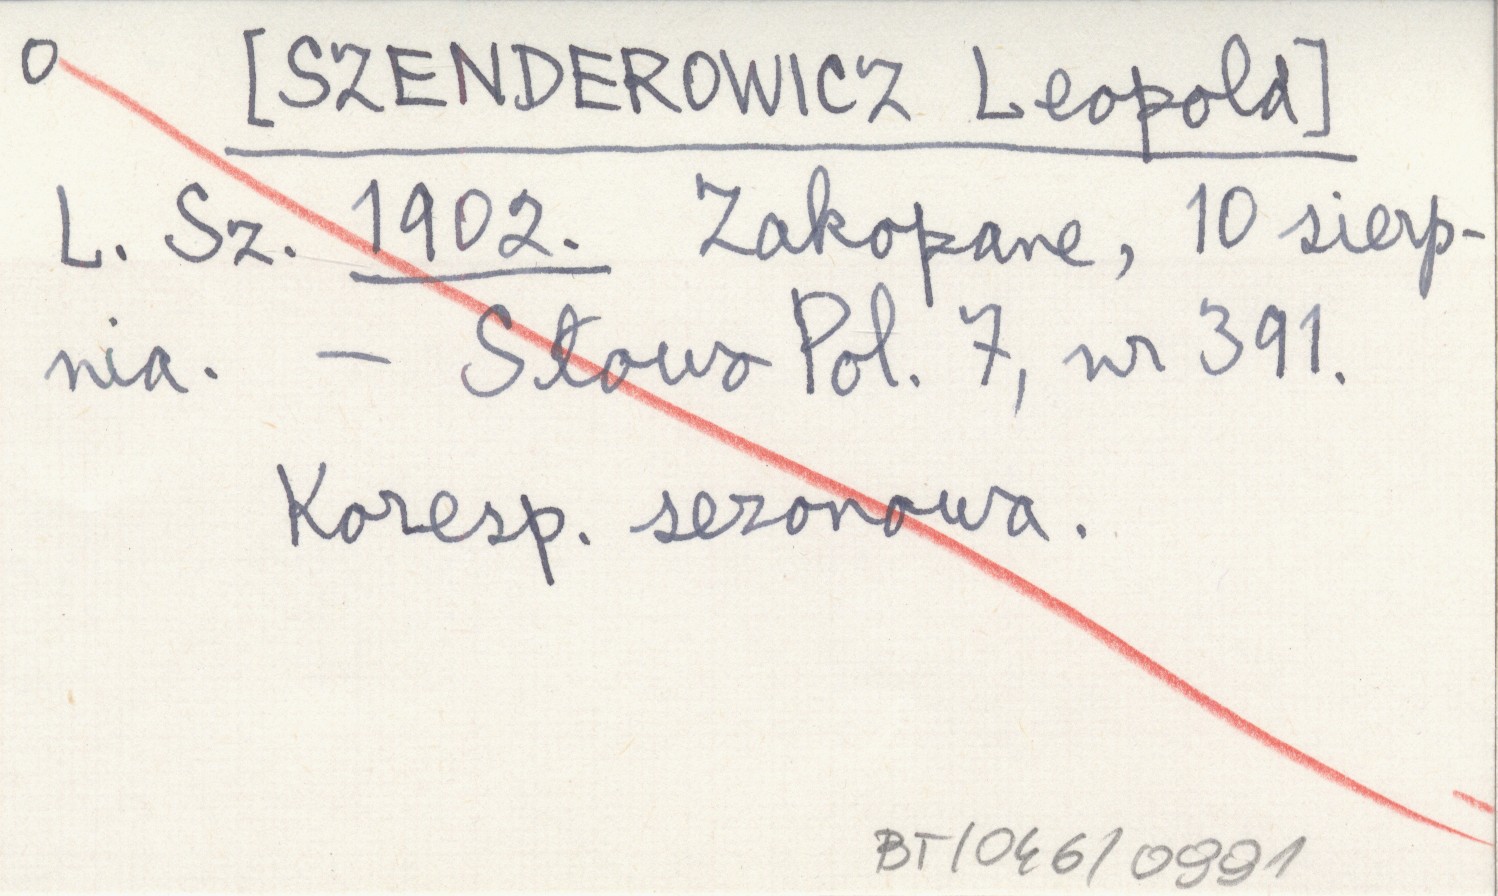 o [SZENDEROWICZ Leopold]
L. Sz. 1902. Zakopane, 10 sierp-
nia. — Słowo Pol. 7, nr 391.
Koresp. sezonowa.
BT/046/0991